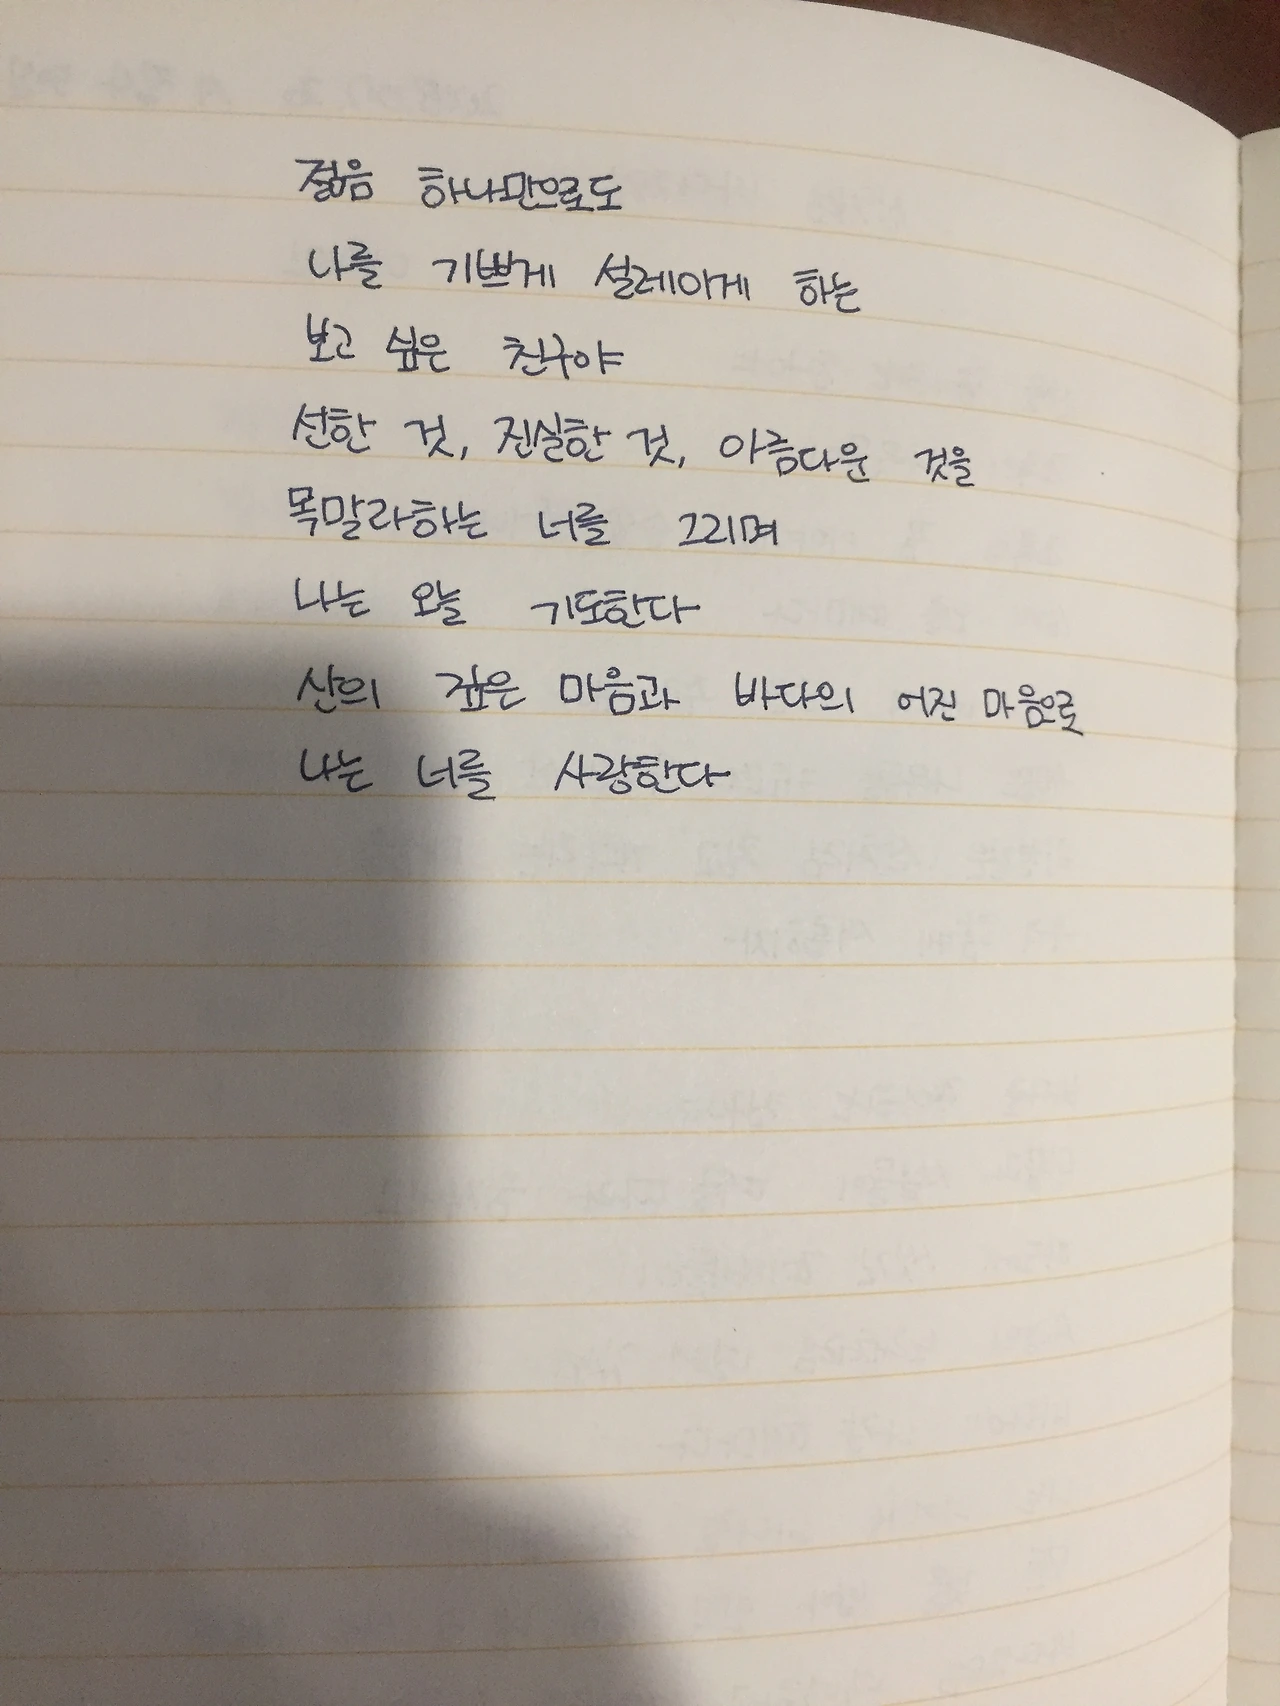 젊음 하나만으로도
나를 기쁘게 설레이게 하는
보고 싶은 친구야
선한 것, 진실한 것, 아름다운 것을
목말라하는 너를 그리며
나는 오늘 기도한다
산의 깊은 마음과 바다의 어진 마음으로
나는 너를 사랑한다